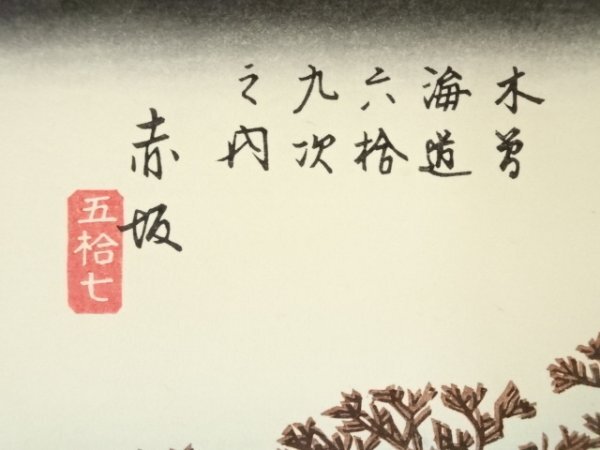 木曽
海道
六拾
九次
之内
赤坂
五拾七